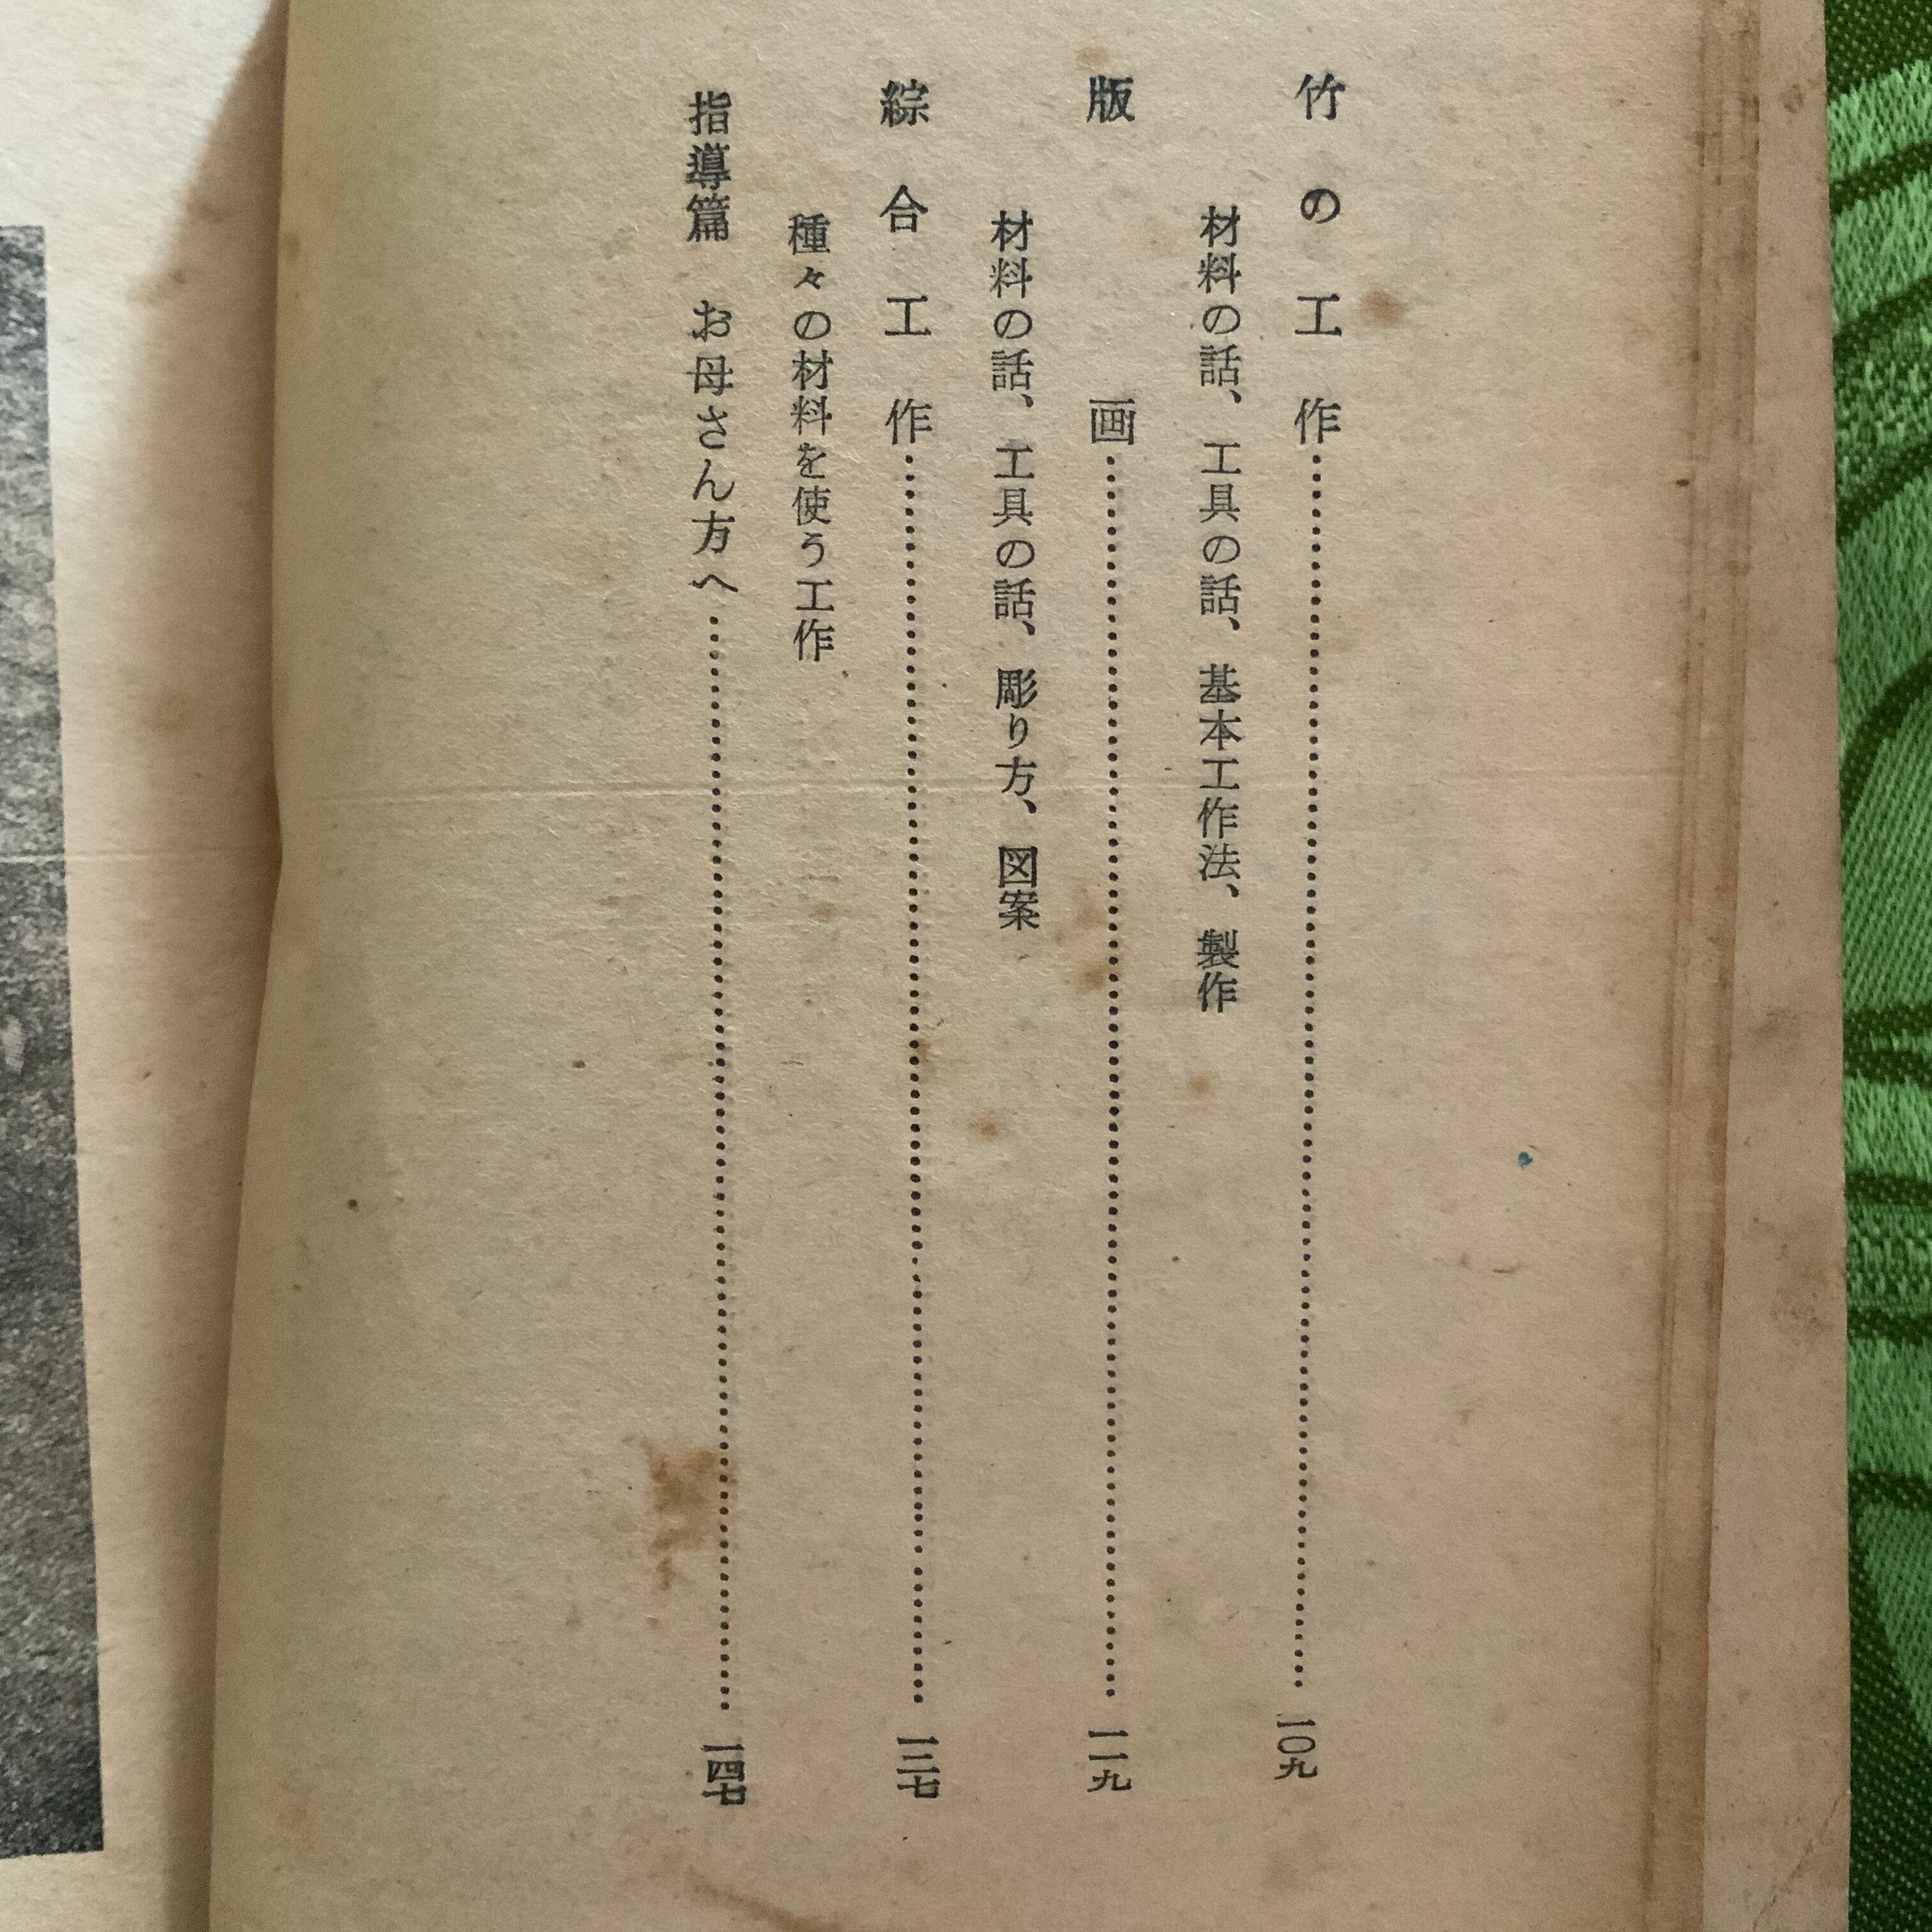 竹の工作……一〇九
材料の話、工具の話、基本工作法、製作
版画……一一九
材料の話、工具の話、彫り方、図案
綜合工作……一三七
種々の材料を使う工作
指導篇　お母さん方へ……一四七